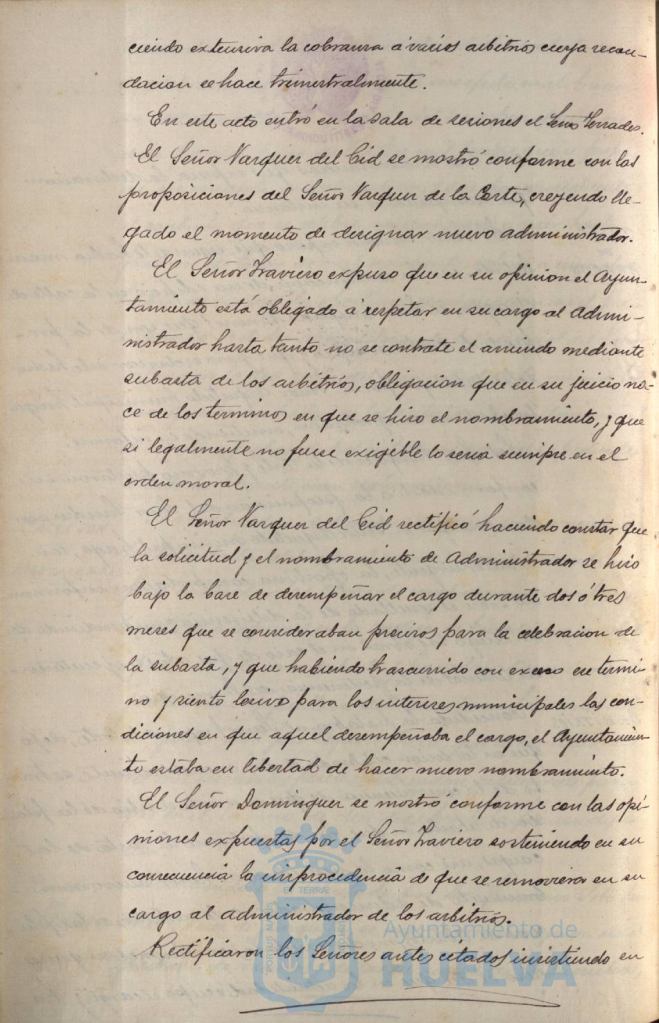 ciendo extensiva la cobranza á varios arbitrios cuya recau-
dacion se hace trimestralmente.
En este acto entró en la sala de sesiones el Señor Terrades.
El Señor Vazquez del Cid se mostró conforme con las
proposiciones del Señor Vazquez de la Corte, creyendo lle-
gado el momento de designar nuevo administrador.
El Señor Traviero expuso que en su opinion el Ayun-
tamiento está obligado á respetar en su cargo al Admi-
nistrador hasta tanto no se contrate el arriendo mediante
subasta de los arbitrios, obligacion que en su juicio na-
ce de los terminos en que se hizo el nombramiento, y que
si legalmente no fuese exigible lo seria siempre en el
orden moral.
El Señor Vazquez del Cid rectificó haciendo constar que
la solicitud y el nombramiento de Administrador se hizo
bajo la base de desempeñar el cargo durante dos ó tres
meses que se consideraban precisos para la celebracion de
la subasta, y que habiendo trascurrido con exceso ese termi-
no y siento lesivo para los intereses municipales las con-
diciones en que aquel desempeñaba el cargo, el Ayuntamien-
to estaba en libertad de hacer nuevo nombramiento.
El Señor Dominguez se mostró conforme con las opi-
niones expuestas por el Señor Traviero sosteniendo en su
consecuencia la improcedencia de que se removiera en su
cargo al administrador de los arbitrios.
Rectificaron los Señores antes citados insistiendo en
Ayuntamiento de
HUELVA